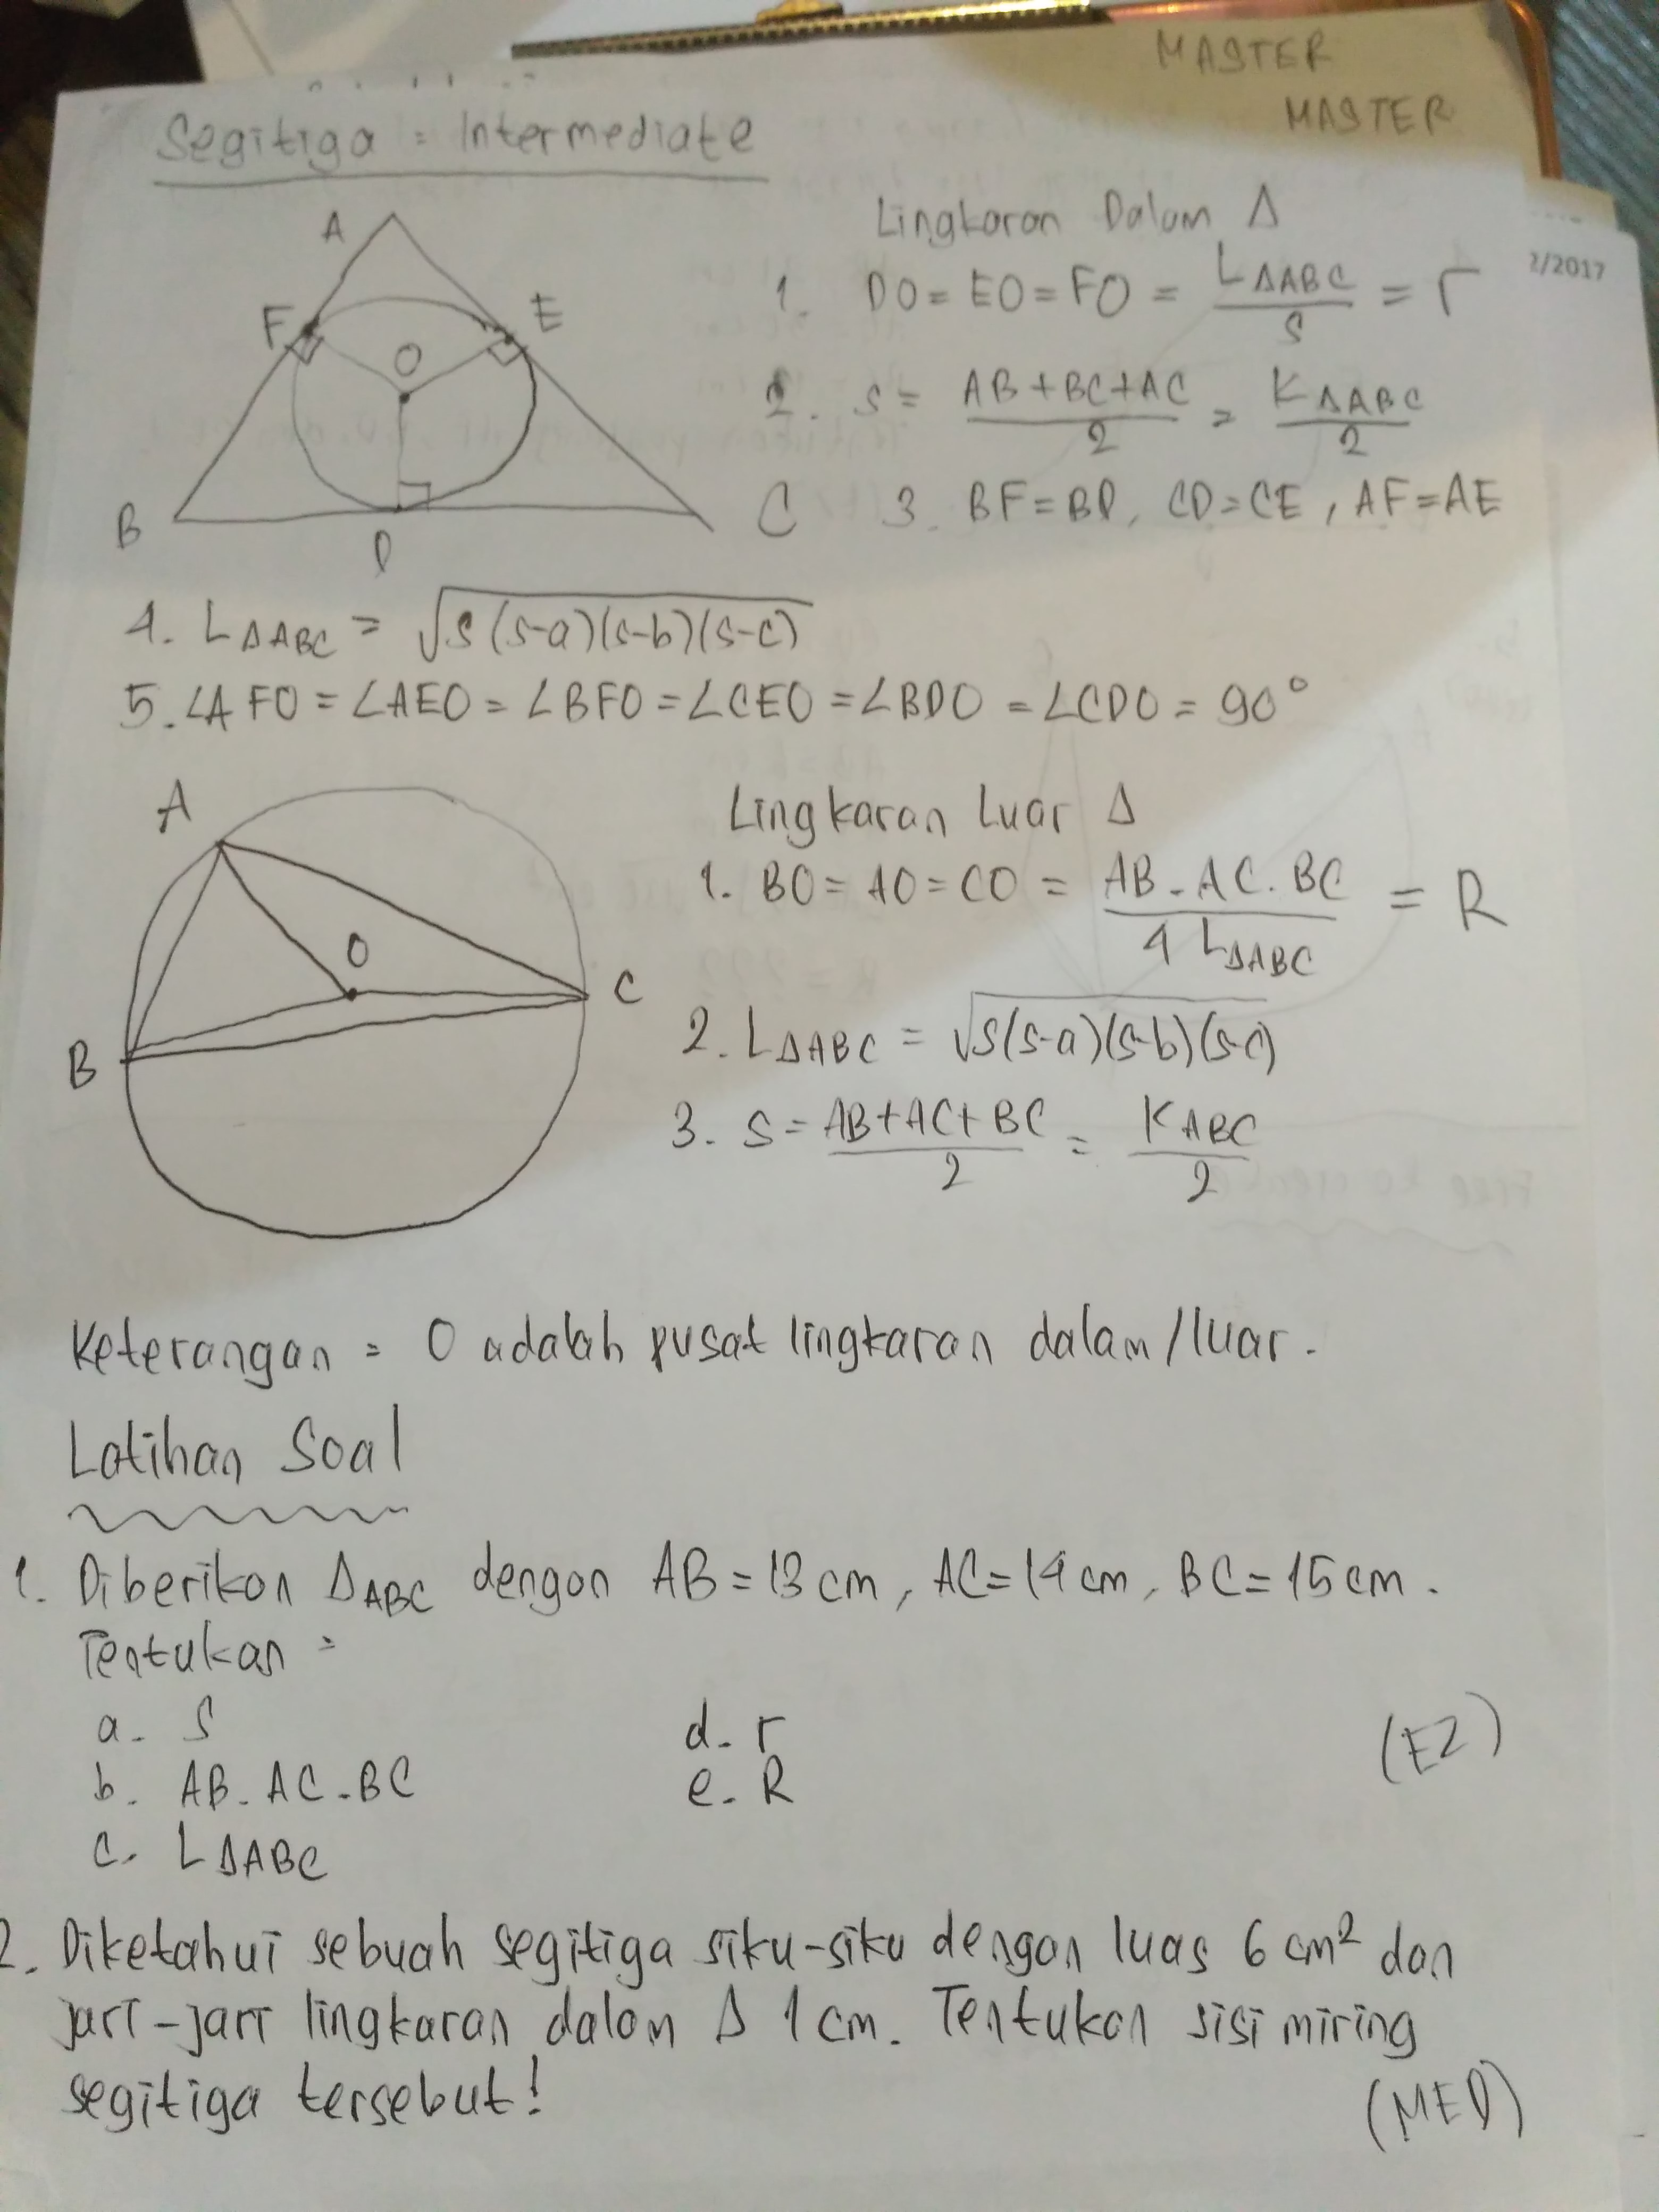 MASTER
MASTER
Segitiga = Intermediate
2/2017
A
F
E
O
B
D
C
Lingkaran Dalam Δ
1. DO = EO = FO = L ΔABC / s = r
2. s = AB + BC + AC / 2 = K ΔABC / 2
3. BF = BD, CD = CE, AF = AE
4. L ΔABC = √s(s-a)(s-b)(s-c)
5. ∠AFO = ∠AEO = ∠BFO = ∠CEO = ∠BDO = ∠CDO = 90°
A
O
C
B
Lingkaran Luar Δ
1. BO = AO = CO = AB . AC . BC / 4 L ΔABC = R
2. L ΔABC = √s(s-a)(s-b)(s-c)
3. s = AB + AC + BC / 2 = K ABC / 2
Keterangan = O adalah pusat lingkaran dalam/luar.
Latihan Soal
1. Diberikan ΔABC dengan AB = 13 cm, AC = 14 cm, BC = 15 cm.
Tentukan =
a. S
d. r
(EZ)
b. AB . AC . BC
e. R
c. L ΔABC
2. Diketahui sebuah segitiga siku-siku dengan luas 6 cm² dan
jari-jari lingkaran dalam Δ 1 cm. Tentukan sisi miring
segitiga tersebut!
(MED)